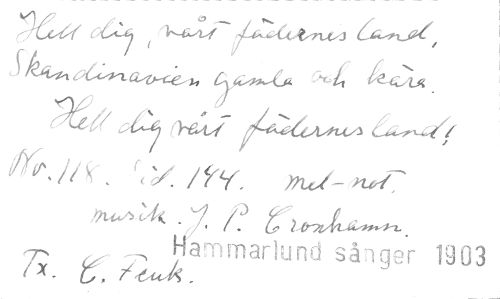 Hell dig, vårt fädernesland,
Skandinavien gamla och kära.
Hell dig vårt fädernesland!
No. 118. Sid. 144. mel-not.
musik. J. P. Cronhamn.
Hammarlund sånger 1903
Tx. C. Feuk.